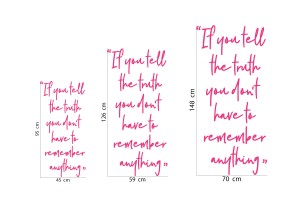 "If you tell
the truth
you don't
have to
remember
anything"
95 cm
45 cm
"If you tell
the truth
you don't
have to
remember
anything"
126 cm
59 cm
"If you tell
the truth
you don't
have to
remember
anything"
148 cm
70 cm